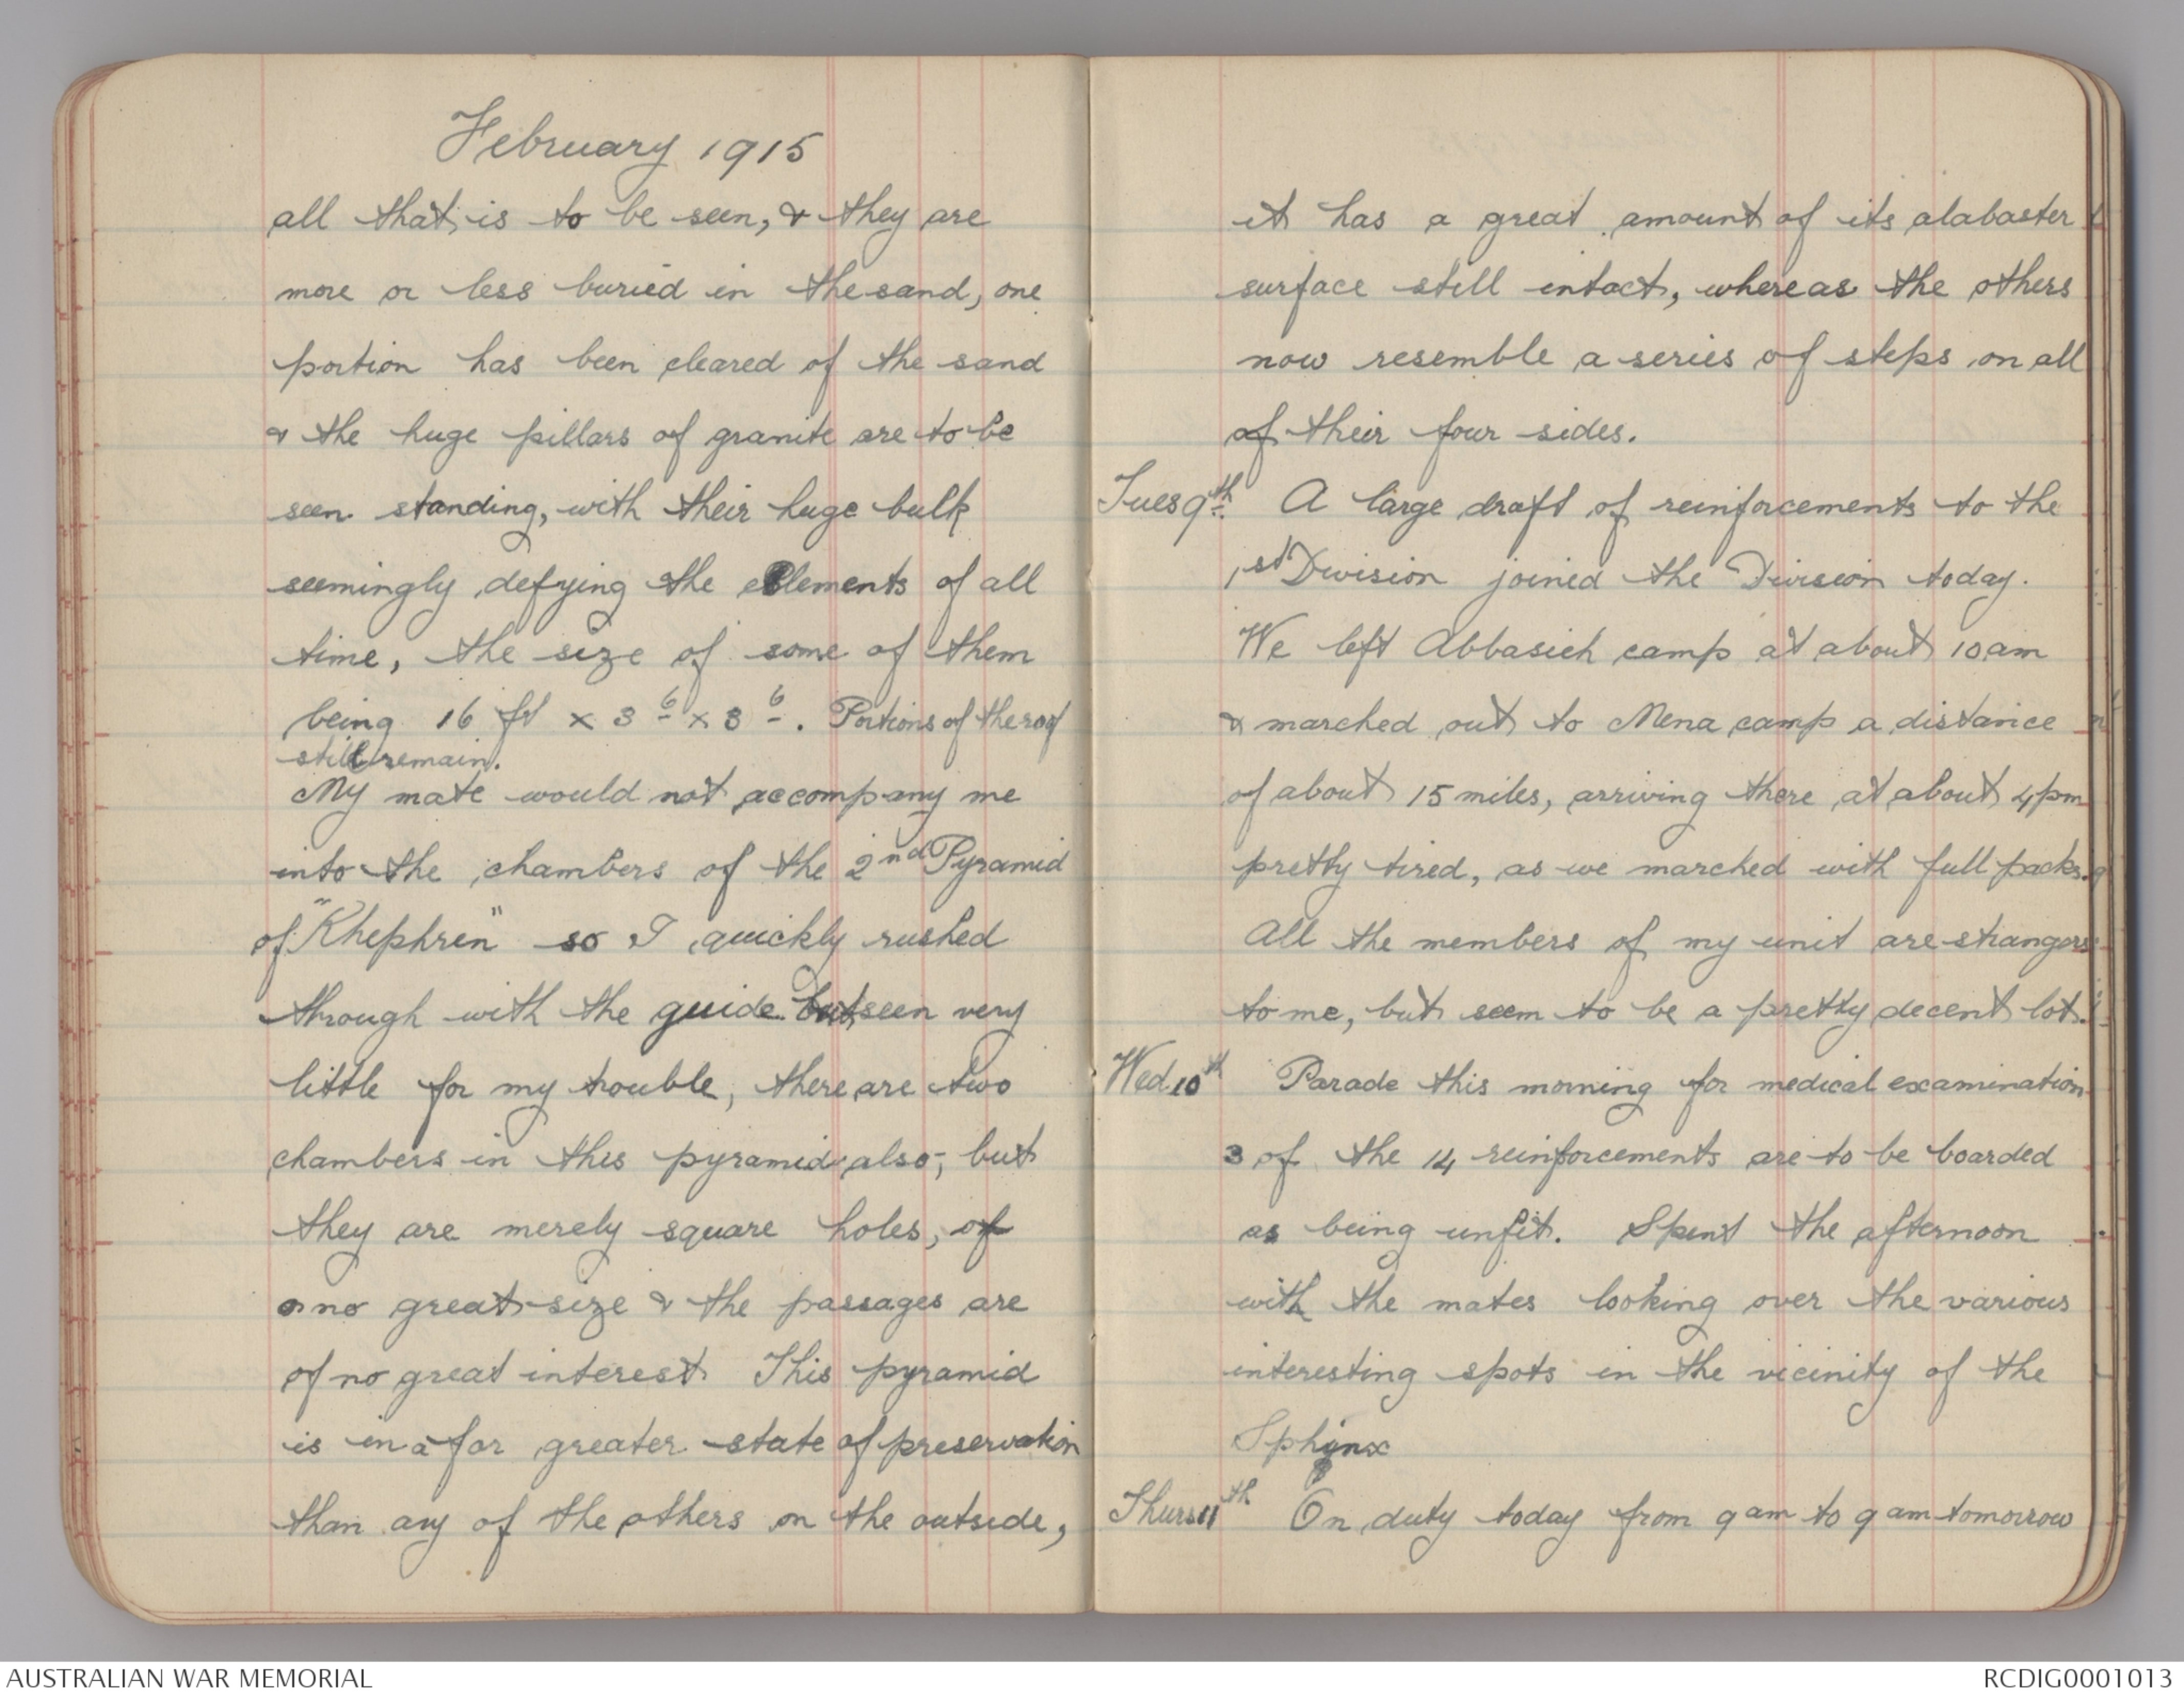 February 1915
all that is to be seen, & they are
more or less buried in the sand, one
portion has been cleared of the sand
& the huge pillars of granite are to be
seen standing, with their huge bulk
seemingly defying the elements of all
time, the size of some of them
being 16 ft x 3 6 x 3 6. Portions of the roof
still remain.
My mate would not accompany me
into the chambers of the 2nd Pyramid
of "Khephren" so I quickly rushed
through with the guide but seen very
little for my trouble, there are two
chambers in this pyramid also, but
they are merely square holes, of
no great size & the passages are
of no great interest This pyramid
is in a far greater state of preservation
than any of the others on the outside,
it has a great amount of its alabaster
surface still intact, whereas the others
now resemble a series of steps on all
of their four sides.
Tues 9th. A large draft of reinforcements to the
1st Division joined the Division today.
We left Abbasieh camp at about 10 am
& marched out to Mena camp a distance
of about 15 miles, arriving there at about 4 pm
pretty tired, as we marched with full packs.
All the members of my unit are strangers
to me, but seem to be a pretty decent lot.
Wed 10th Parade this morning for medical examination
3 of the 14 reinforcements are to be boarded
as being unfit. Spent the afternoon
with the mates looking over the various
interesting spots in the vicinity of the
Sphinx
Thurs 11th On duty today from 9 am to 9 am tomorrow
AUSTRALIAN WAR MEMORIAL
RCDIG0001013